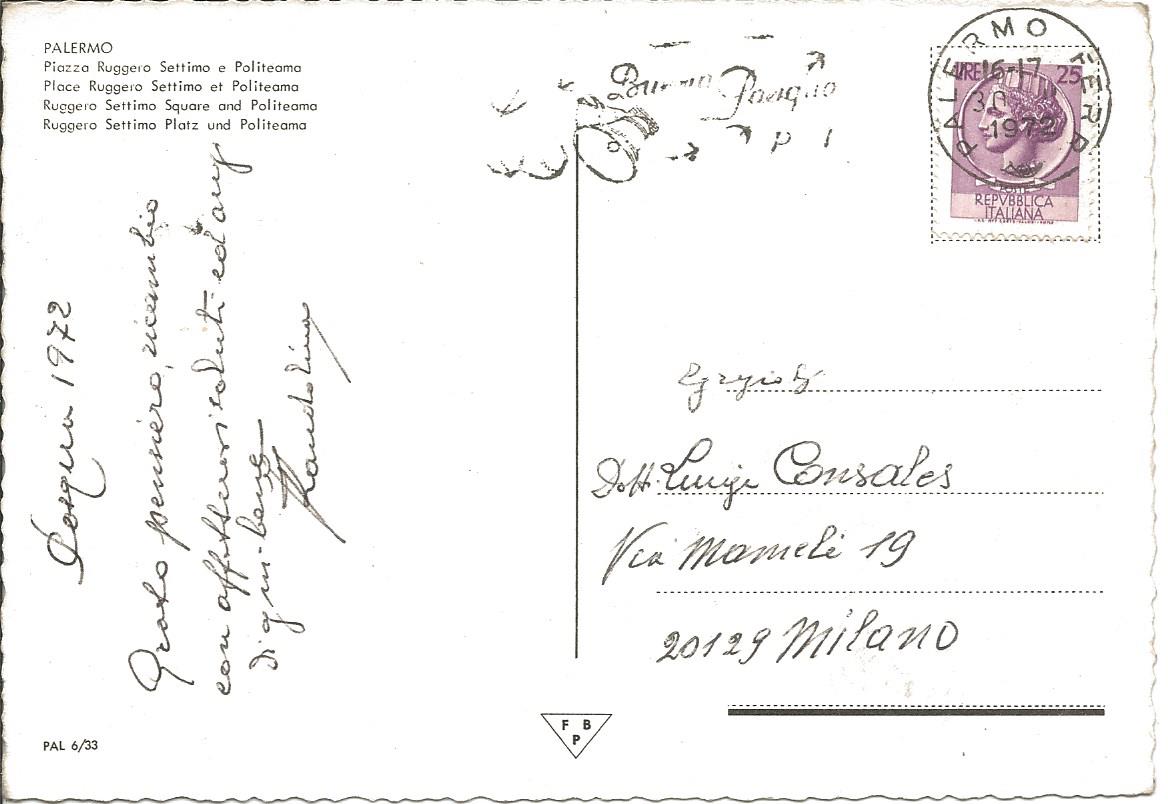 PALERMO
Piazza Ruggero Settimo e Politeama
Place Ruggero Settimo et Politeama
Ruggero Settimo Square and Politeama
Ruggero Settimo Platz und Politeama
Pasqua 1972
Grato pensiero, ricambio
con affettuosi saluti ed aug
di ogni bene
Buona Pasqua
PALERMO FERR
16-17
30
1972
LIRE 25
REPVBBLICA
ITALIANA
Dott. Luigi Consales
Via Mameli 19
20129 Milano
PAL 6/33
F B
P